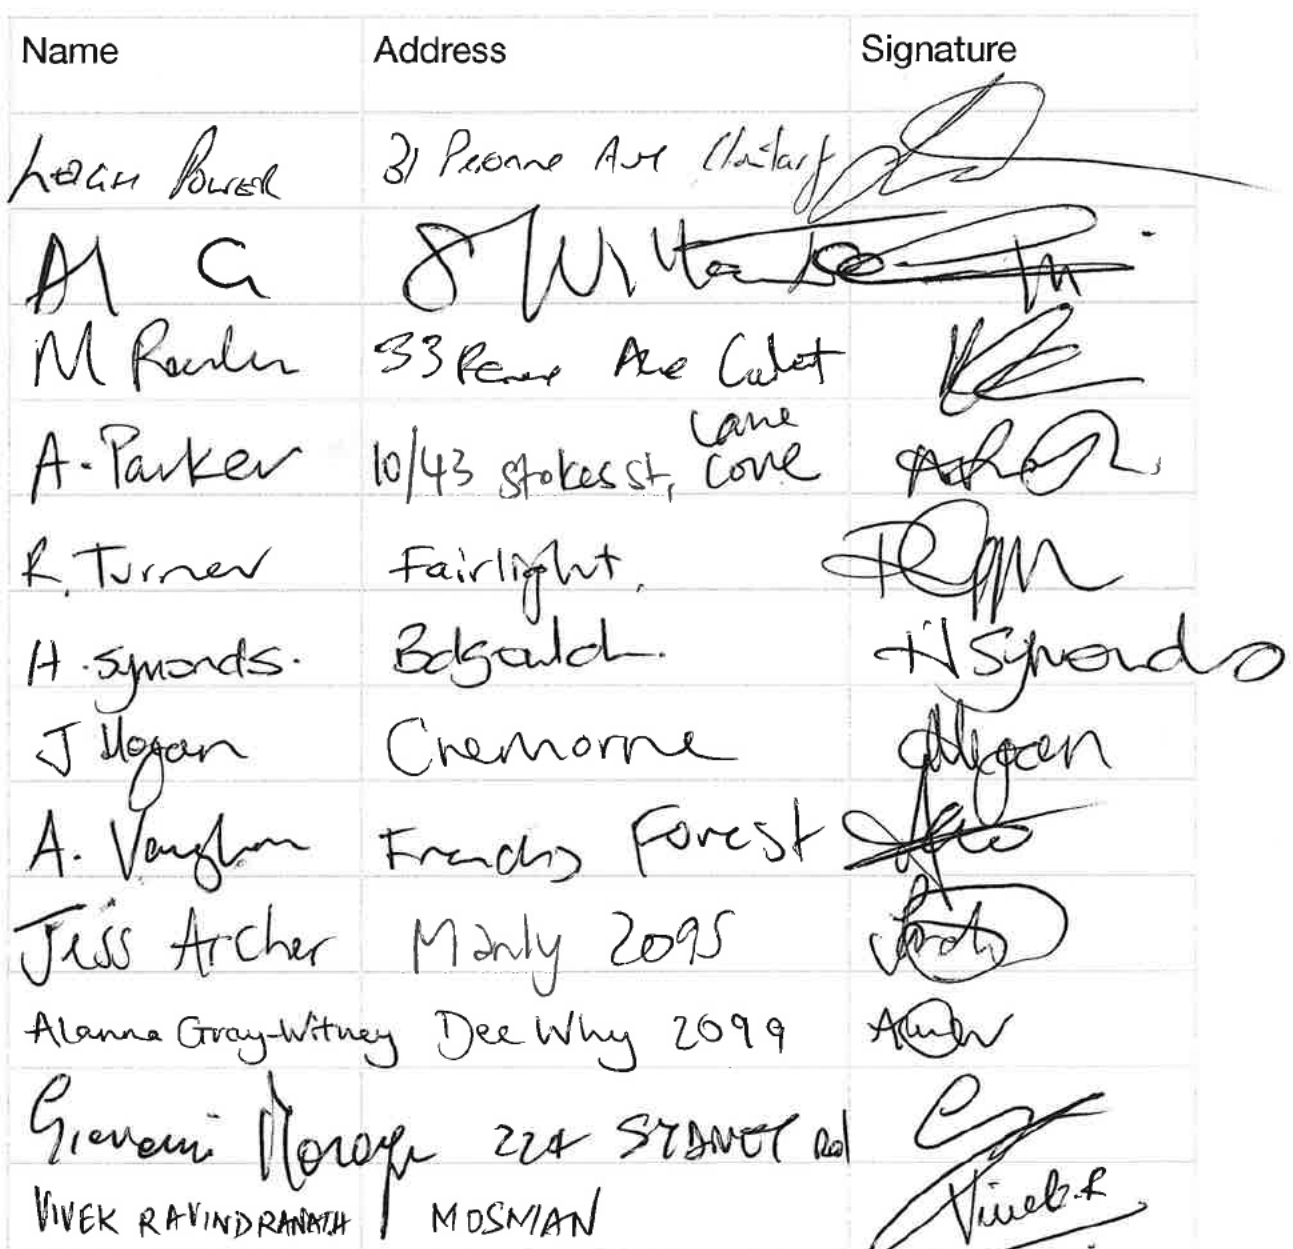 Name Address Signature
Leigh Power 31 Peronne Ave Clontarf
Al G 8
M 33 Ave
A. Parker 10/43 Stokes St, Lane Cove
R. Turner Fairlight.
H. Symonds. Balgowlah. H Symonds
J Hogan Cremorne
A. Vaughan Frenchs Forest
Jess Archer Manly 2095
Alanna Gray-Witney Dee Why 2099
Giovanni 224 SYDNEY Rd
VIVEK RAVINDRANATH MOSMAN Vivek.R